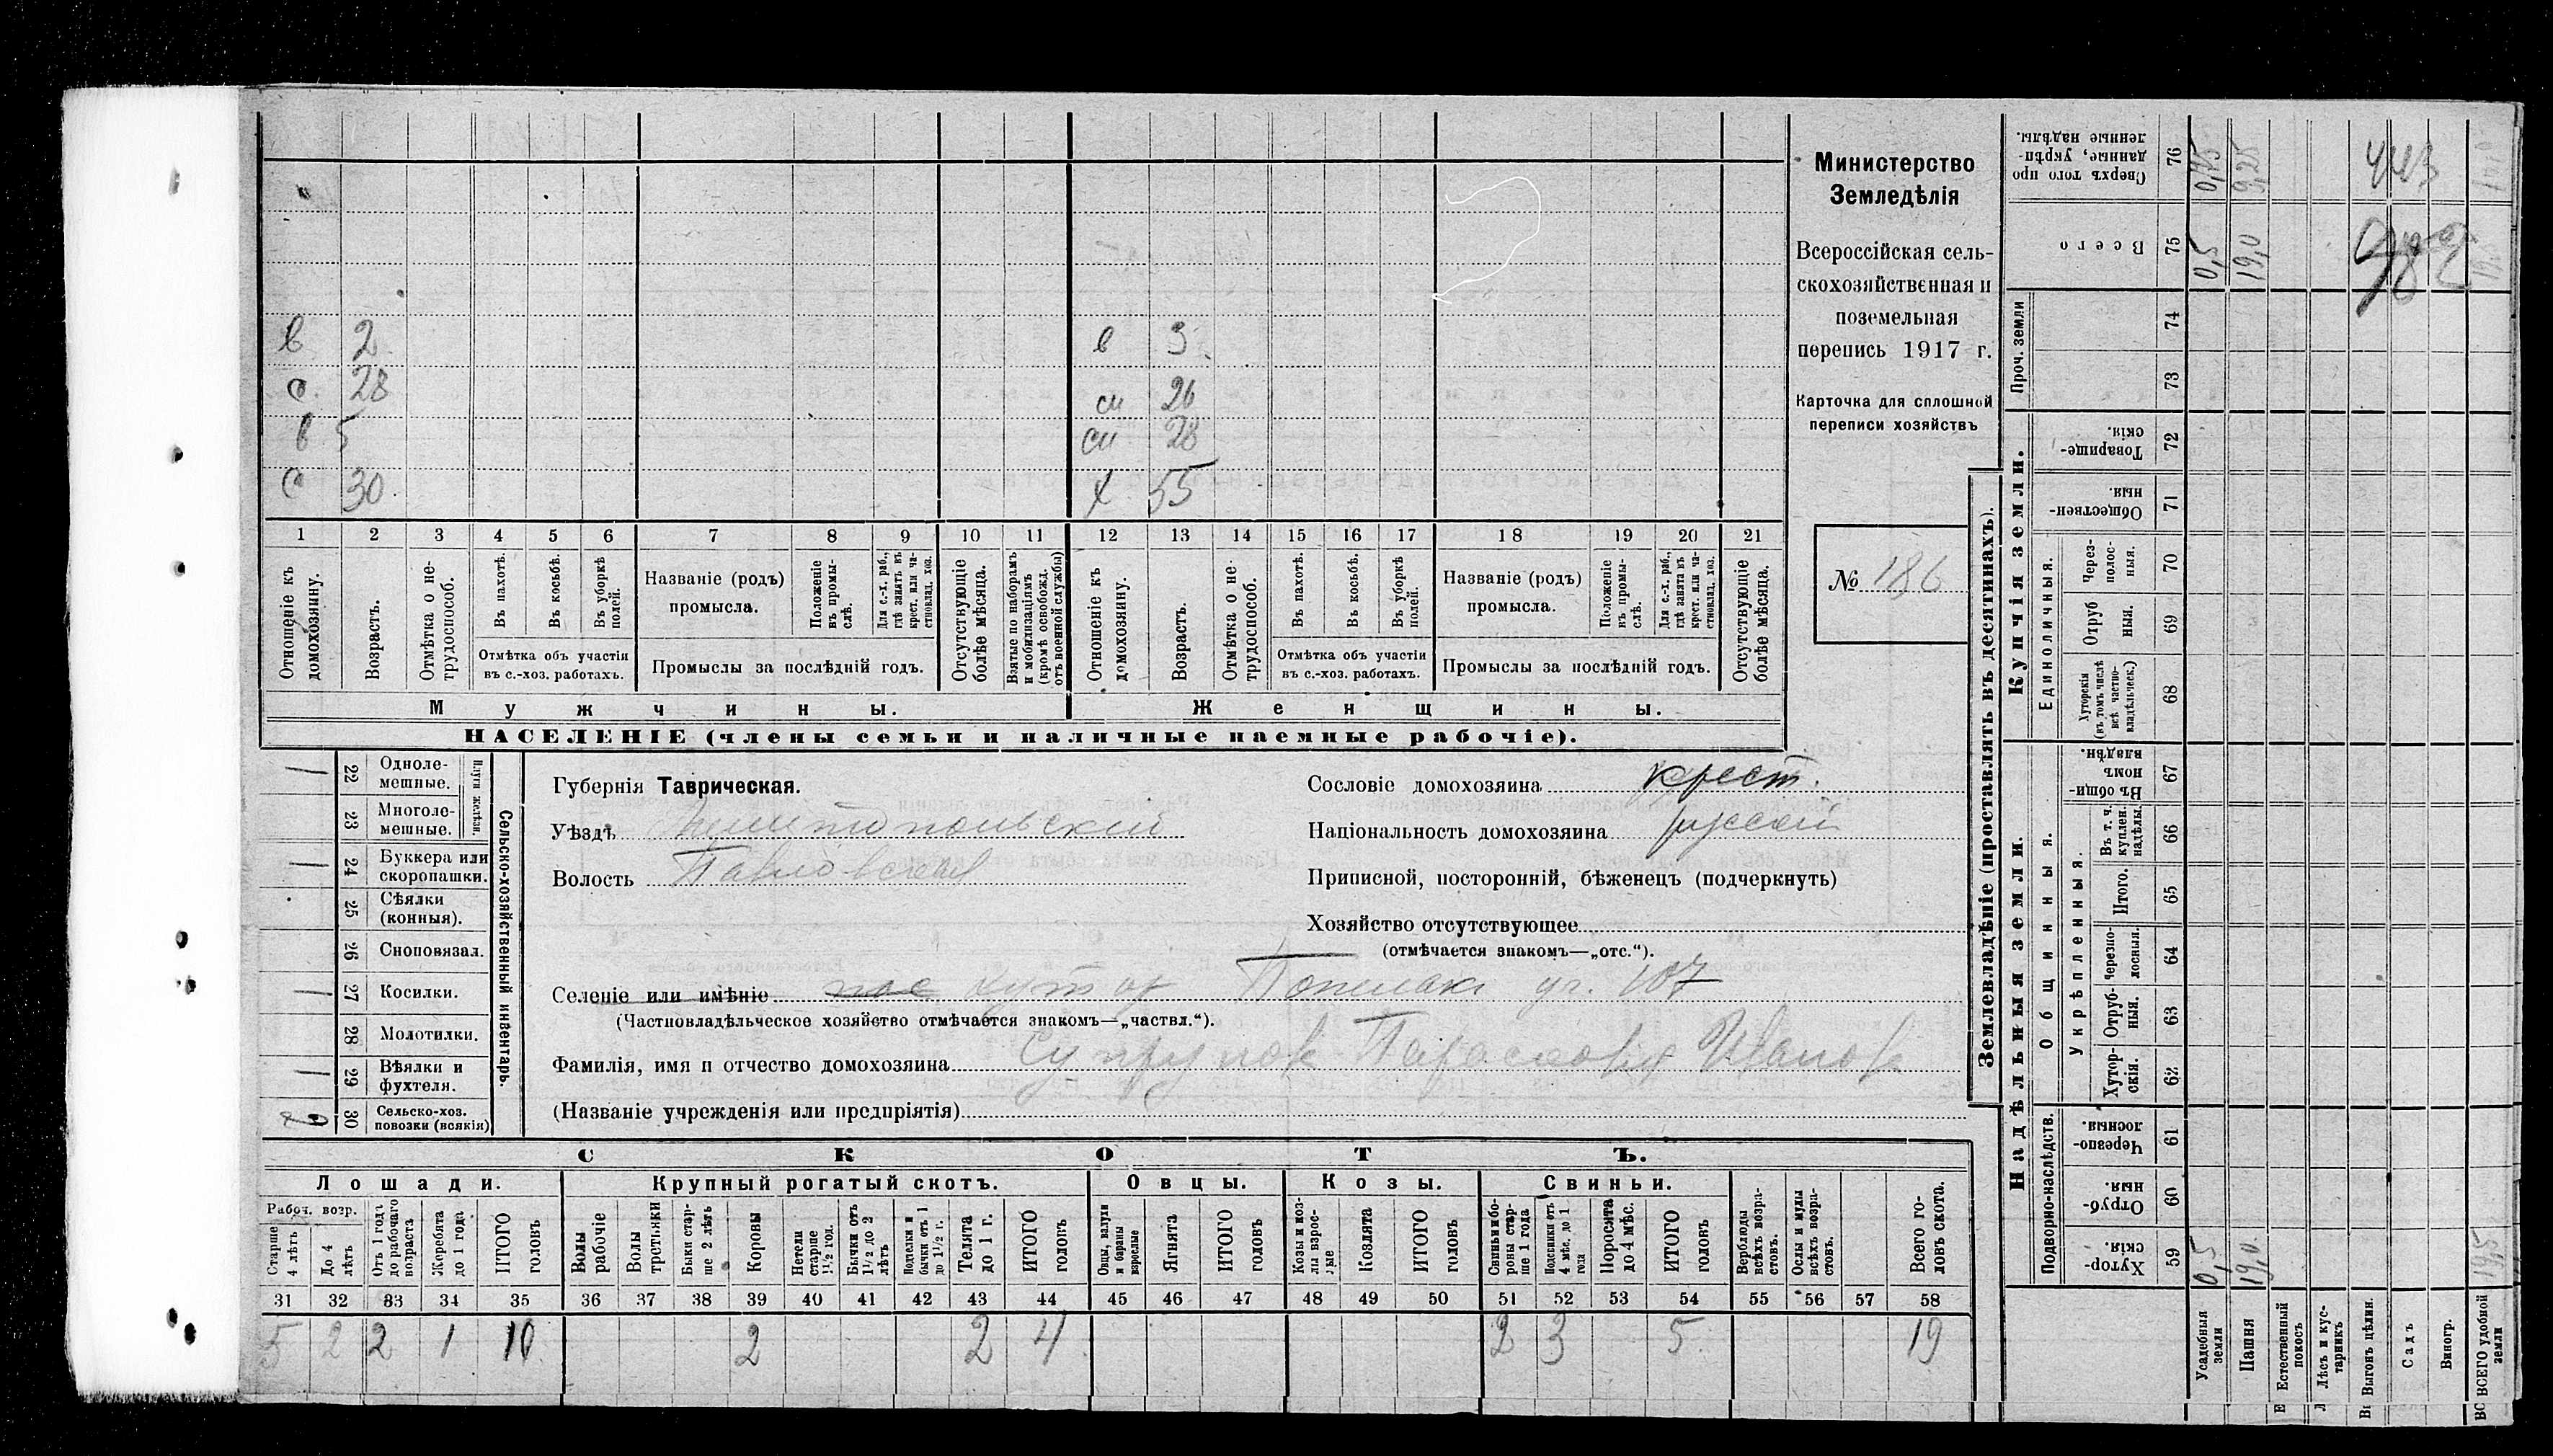 Министерство
Земледѣлія
Всероссійская сель-
скохозяйственная и
поземельная
перепись 1917 г.
Карточка для сплошной
переписи хозяйствъ
№ 186
в 2 в 3
с 28 сн 26
в 5 сн 28
с 30 х 55
1 2 3 4 5 6 7 8 9 10 11 12 13 14 15 16 17 18 19 20 21
Отношеніе къ домохозяину.
Возрастъ.
Отмѣтка о не-трудоспособ.
Въ пахотѣ.
Въ косьбѣ.
Въ уборкѣ полей.
Отмѣтка объ участіи
въ с.-хоз. работахъ.
Названіе (родъ)
промысла.
Положеніе въ промы-слѣ.
Для с.-х. раб., гдѣ занятъ въ крест. или ча-стновлад. хоз.
Промыслы за послѣдній годъ.
Отсутствующіе болѣе мѣсяца.
Взятые по наборамъ и мобилизаціямъ (кромѣ освобожд. отъ военной службы)
Отношеніе къ домохозяину.
Возрастъ.
Отмѣтка о не-трудоспособ.
Въ пахотѣ.
Въ косьбѣ.
Въ уборкѣ полей.
Отмѣтка объ участіи
въ с.-хоз. работахъ.
Названіе (родъ)
промысла.
Положеніе въ промы-слѣ.
Для с.-х. раб., гдѣ занята въ крест. или ча-стновлад. хоз.
Промыслы за послѣдній годъ.
Отсутствующіе болѣе мѣсяца.
Мужчины. Женщины.
НАСЕЛЕНІЕ (члены семьи и наличные наемные рабочіе).
Сельско-хозяйственный инвентарь.
Плуги желѣзн.
22 Одноле-мешные.
23 Многоле-мешные.
24 Буккера или скоропашки.
25 Сѣялки (конныя).
26 Сноповязал.
27 Косилки.
28 Молотилки.
29 Вѣялки и фухтеля.
30 Сельско-хоз. повозки (всякія)
Губернія Таврическая.
Уѣздъ Мелитопольскій
Волость Павловская
Сословіе домохозяина крест.
Національность домохозяина русскій
Приписной, посторонній, бѣженецъ (подчеркнуть)
Хозяйство отсутствующее
(отмѣчается знакомъ—„отс.“).
Селеніе или имѣніе пос хутор уч. 107
(Частновладѣльческое хозяйство отмѣчается знакомъ—„частвл.“).
Фамилія, имя и отчество домохозяина Супрунова Парасковія Иванов
(Названіе учрежденія или предпріятія)
СКОТЪ.
Лошади. Крупный рогатый скотъ. Овцы. Козы. Свиньи.
Рабоч. возр.
Старше 4 лѣтъ
До 4 лѣтъ
Отъ 1 года до рабочаго возраста
Жеребята до 1 года
ИТОГО головъ
Волы рабочіе
Волы третьяки
Быки стар-ше 2 лѣтъ
Коровы
Нетели старше 1½ год.
Бычки отъ 1½ до 2 лѣтъ
Подтелки и бычки отъ 1 до 1½ г.
Телята до 1 г.
ИТОГО головъ
Овцы, валухи и бараны взрослые
Ягнята
ИТОГО головъ
Козы и коз-лы взрос-лые
Козлята
ИТОГО головъ
Свиньи и бо-ровы стар-ше 1 года
Подсвинки отъ 4 мѣс. до 1 года
Поросята до 4 мѣс.
ИТОГО головъ
Верблюды всѣхъ возра-стовъ.
Ослы и мулы всѣхъ возра-стовъ.
Всего го-ловъ скота.
31 32 33 34 35 36 37 38 39 40 41 42 43 44 45 46 47 48 49 50 51 52 53 54 55 56 57 58
5 2 2 1 10 2 2 4 2 3 5 19
Землевладѣніе (проставлять въ десятинахъ).
Надѣльныя земли. Купчія земли. Проч. земли
Подворно-наслѣдств.
Общинныя.
Укрѣпленныя.
Единоличныя.
59 Хутор-скія.
60 Отруб-ныя.
61 Черезпо-лосныя.
62 Хутор-скія.
63 Отруб-ныя.
64 Черезпо-лосныя.
65 Итого.
66 Въ т. ч. куплен. надѣлы.
67 Въ общи-номъ владѣн.
68 Хуторскія (въ томъ числѣ всѣ частно-владѣльческ.)
69 Отруб ныя.
70 Через-полос-ныя.
71 Обществен-ныя.
72 Товарище-скія.
73
74
75 Всего
76 Сверхъ того про данные, укрѣп-ленные надѣлы.
Усадебныя земли 0,5 0,5
Пашня 19,0 19,0 9,25
Естественный покосъ
Лѣсъ и кус-тарникъ
Выгонъ цѣлин.
Садъ
Виногр.
ВСЕГО удобной земли 19,5